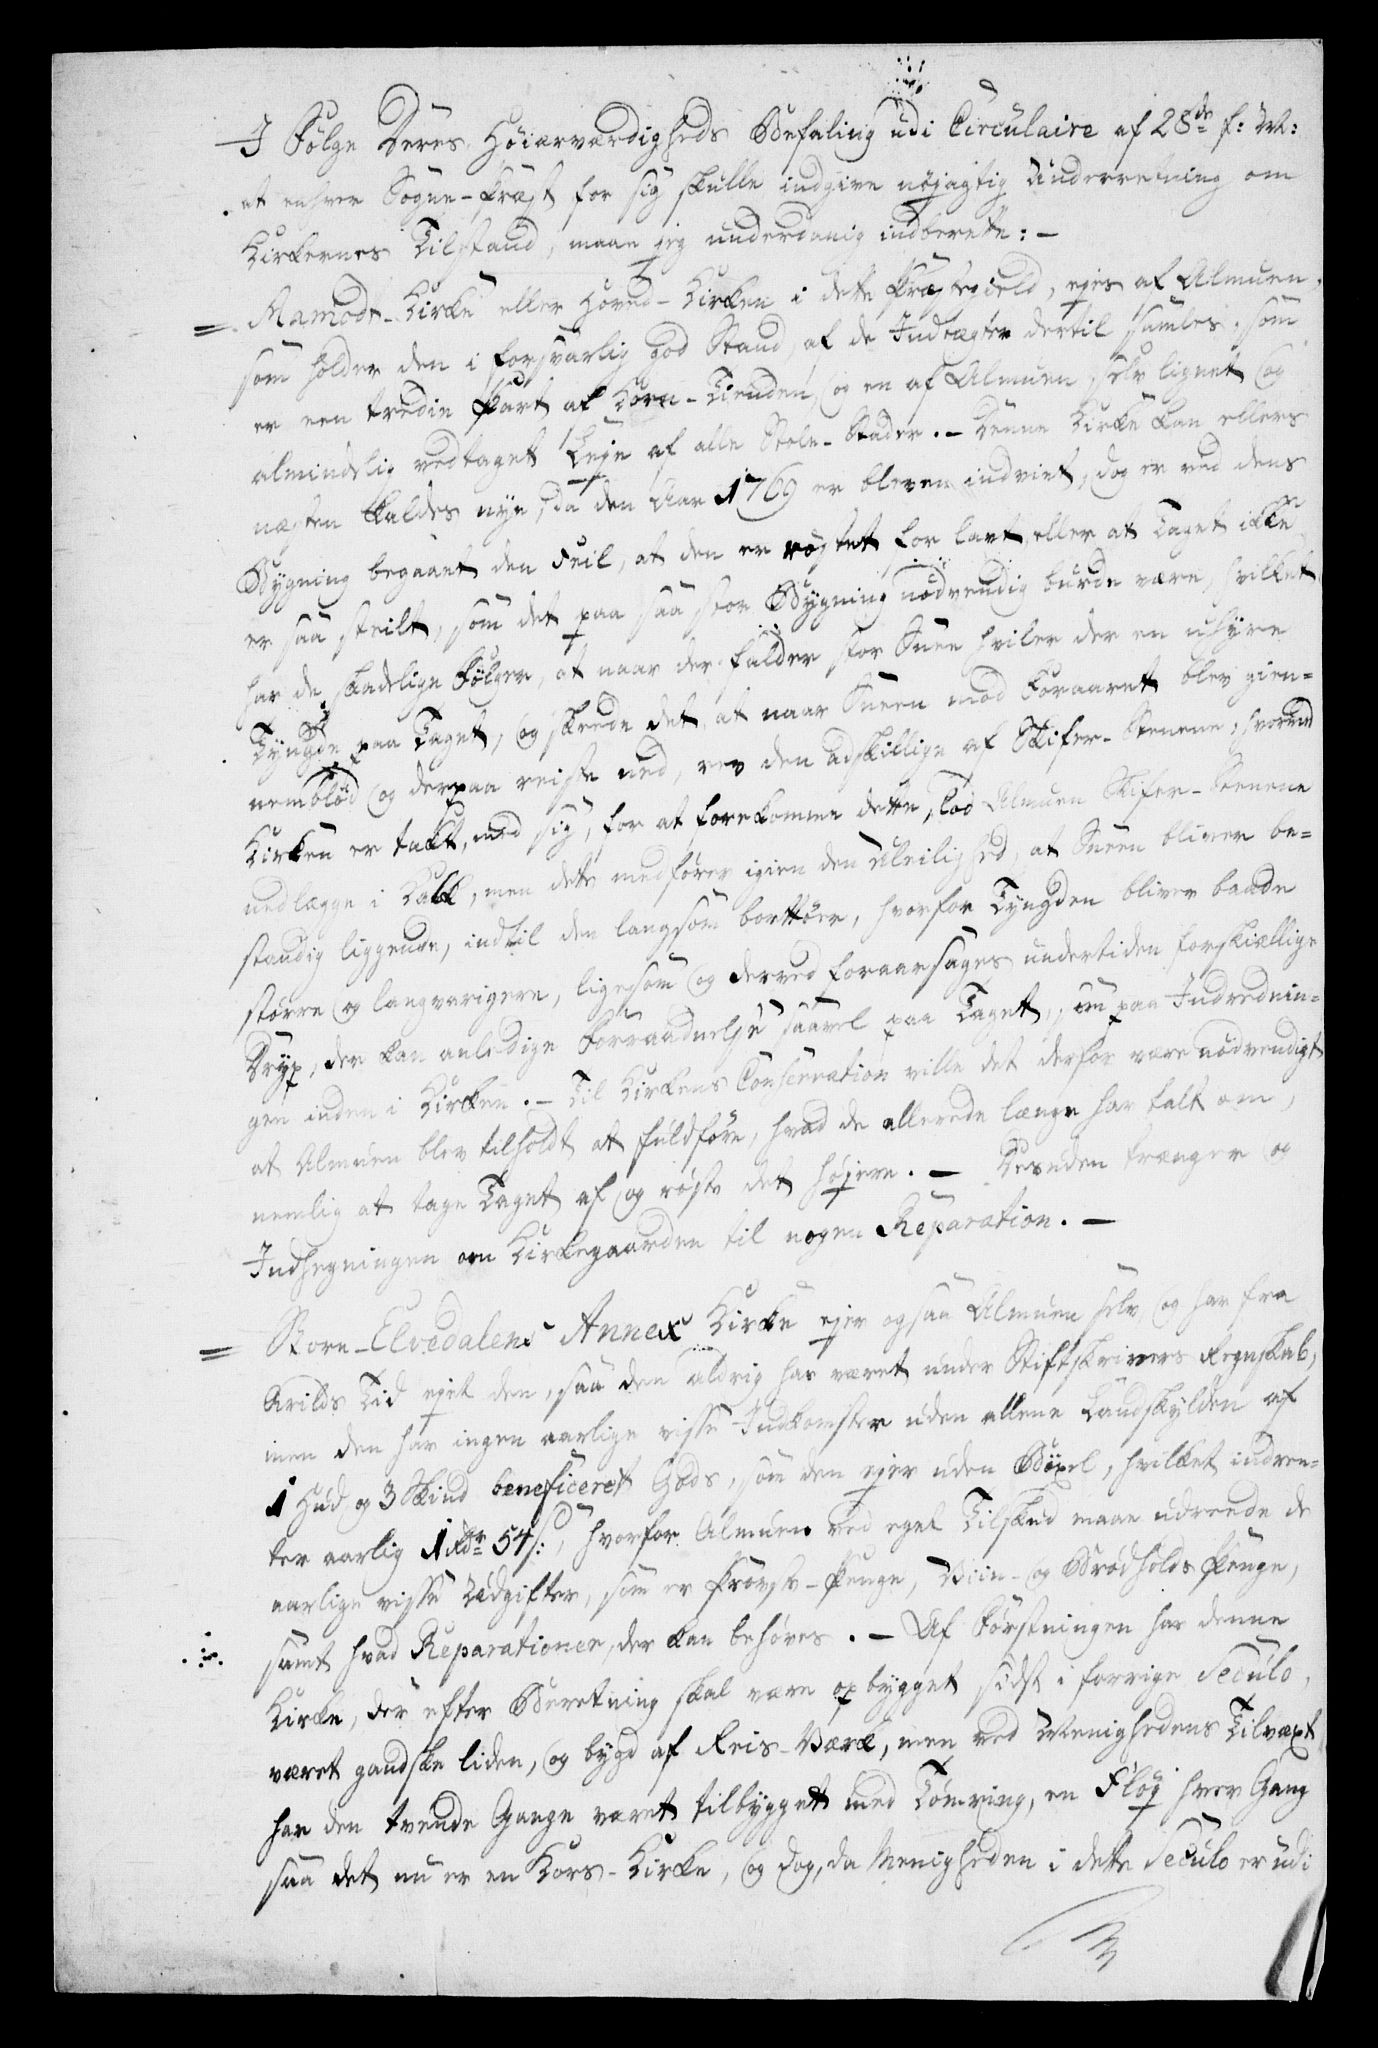 I Følge Deres Høiærværdigheds Befaling udi Circulaire af 28de f: M:
at enhver Sogne-Præst for sig skulle indgive nøjagtig Underretning om
Kirkernes Tilstand, maae jeg underdanig indberette: -
= Aamodt-Kirke eller Hoved-Kirken i dette Præstegield, ejes af Almuen,
som holder den i forsvarlig god Stand, af de Indtægter dertil samles, som
er een tredie Part af Korn-Tienden, og en af Almuen selv lignet og
almindelig vedtaget Leje af alle Stole-Stader. - Denne Kirke kan ellers
næsten kaldes nye, da den Aar 1769 er bleven indviet, dog er ved dens
Bygning begaaet den Feil, at den er røstet for lavt eller at Taget ikke
er saa steilt, som det paa saa stor Bygning nødvendig burde være, hvilket
har de skadelige Følger, at naar der falder stor Snee hviler der en uhyre
Tyngde paa Taget, og skeede det at naar Sneen mod Foraaret blev gien-
nemblød og derpaa reiste ned, rev den adskillige af Skifer-Stenene, hvorved
Kirken er tækt, med sig, for at forekomme dette, lod Almuen Skifer-Stenene
nedlægge i Kalk, men dette medfører igien den Uleilighed, at Sneen bliver be-
standig liggende, indtil den langsom borttøer, hvorfor Tyngden bliver baade
større og langvarigere, ligesom og derved foraarsages undertiden forskiællige
Dryp, der kan anledige Forraadnelse saavel paa Taget, som paa Indrednin-
gen inden i Kirken. - Til Kirkens Conservation ville det derfor være nødvendigt
at Almuen blev tilholdt at fuldføre, hvad de allerede længe har talt om,
nemlig at tage Taget af og røste det højere. - Desuden trænger og
Indhegningen om Kirkegaarden til nogen Reparation. -
= Store-Elvedalens Annex Kirke ejer ogsaa Almuen selv, og har fra
Arilds Tid ejet den, saa den aldrig har været under Stiftskrivers Regnskab,
men den har ingen aarlige visse Indkomster uden allene Landskylden af
1 Hud og 3 Skind beneficeret Gods, som den ejer uden Bøxel, hvilket indren-
ter aarlig 1 Rdr 54 s:, hvorfor Almuen ved eget Tilskud maae udreede de
aarlige visse Udgifter, som er Provste-Penge, Viin- og Brødholds Penge,
samt hvad Reparationer, der kan behøves. - Af Førstningen har denne
Kirke, der efter Beretning skal være opbygget sidst i forrige Seculo,
været gandske liden, og bygd af Reis-Værk, men ved Menighedens Tilvæxt
har den tvende Gange været tilbygget med Tømring, en Fløj hver Gang
saa det nu er en Kors-Kirke, og dog, da Menigheden i dette Seculo er udi